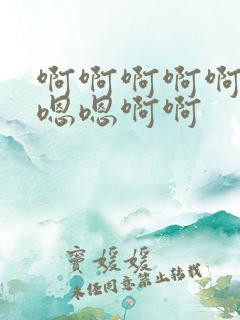 啊啊啊啊啊
嗯嗯啊啊
窦媛媛
未经同意禁止转载